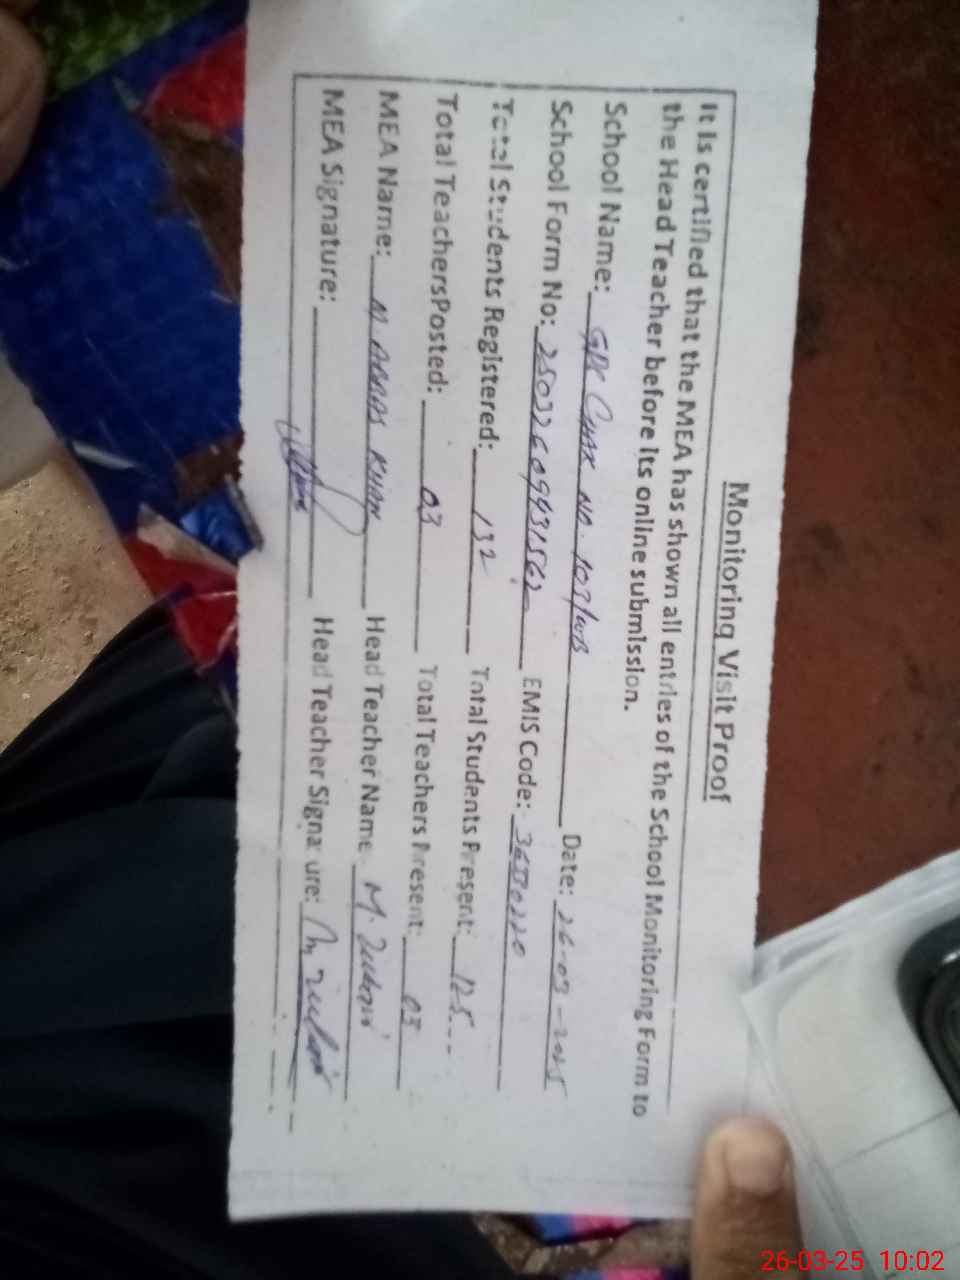 Monitoring Visit Proof
It is certified that the MEA has shown all entries of the School Monitoring Form to
the Head Teacher before its online submission.
School Name: GPS Chak No. 103/WB Date: 26-03-2025
School Form No: EMIS Code:
Total Students Registered: 132 Total Students Present: 125
Total TeachersPosted: 03 Total Teachers Present: 03
MEA Name: M Abbas Khan Head Teacher Name M. Zubair
MEA Signature: Head Teacher Signature: M Zubair
26-03-25 10:02